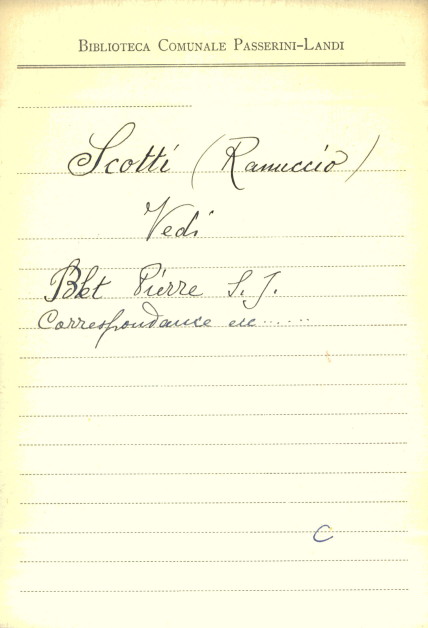 BIBLIOTECA COMUNALE PASSERINI-LANDI
Scotti (Ranuccio)
Vedi
Blet Pierre S. J.
Correspondance etc......
C